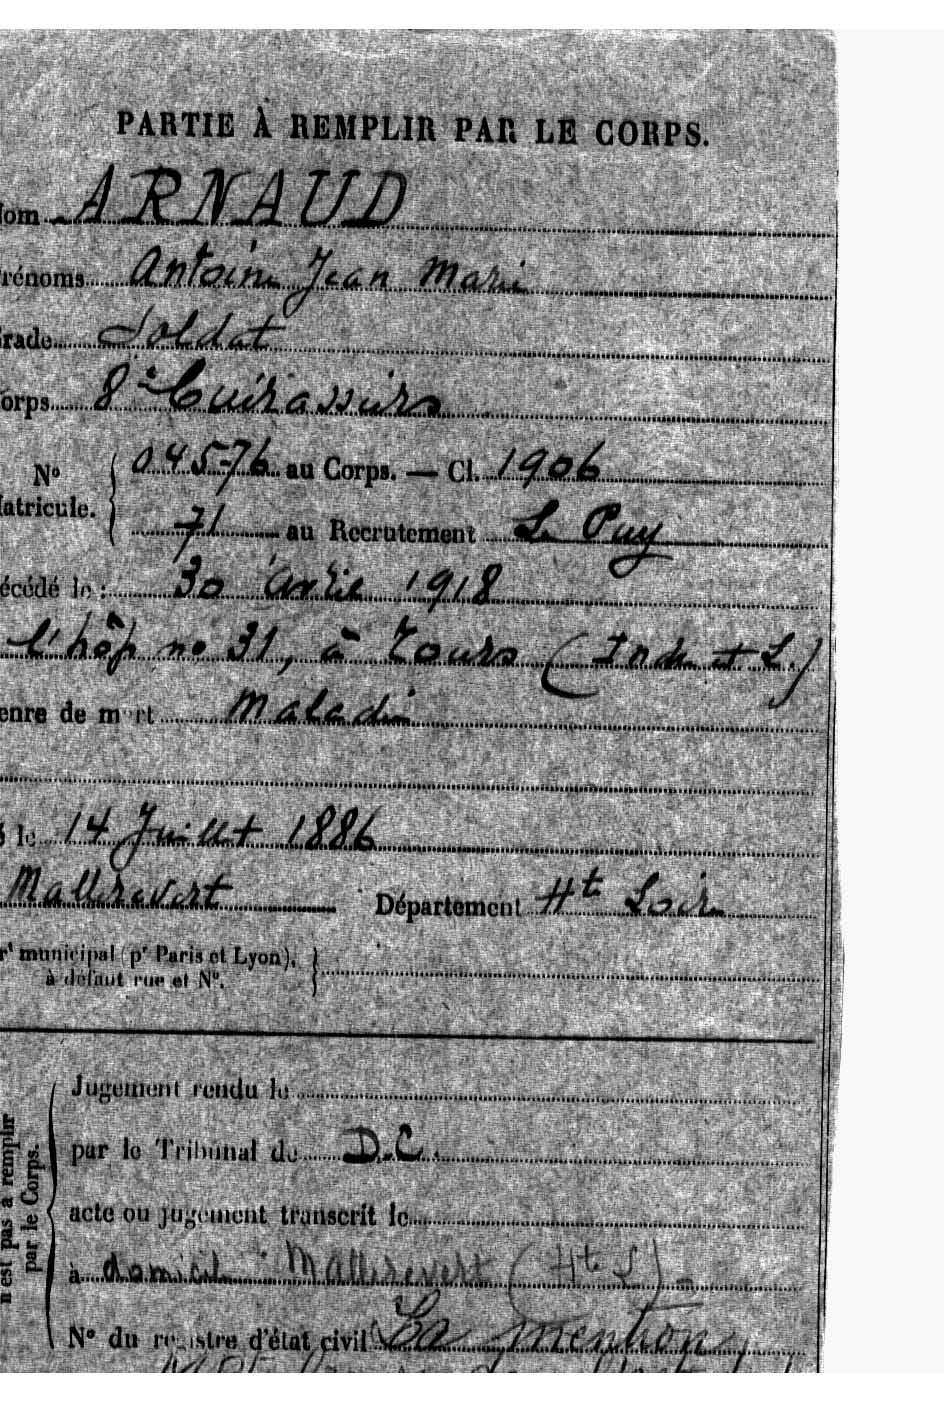 PARTIE À REMPLIR PAR LE CORPS.
Nom ARNAUD
Prénoms Antoine Jean Marie
Grade Soldat
Corps 8e Cuirassiers
No Matricule. { 04576 au Corps. — Cl. 1906
71 au Recrutement Le Puy
écédé le : 30 avril 1918
l'hôp no 31, à Tours (Indre et L.)
enre de mort Maladie
é le 14 Juillet 1886
Mallrevert Département Hte Loire
rt municipal (pr Paris et Lyon), à défaut rue et No. }
Jugement rendu le
par le Tribunal de D.C.
acte ou jugement transcrit le
à domicile Mallrevert (Hte L)
No du registre d'état civil La mention
n'est pas à remplir
par le Corps.